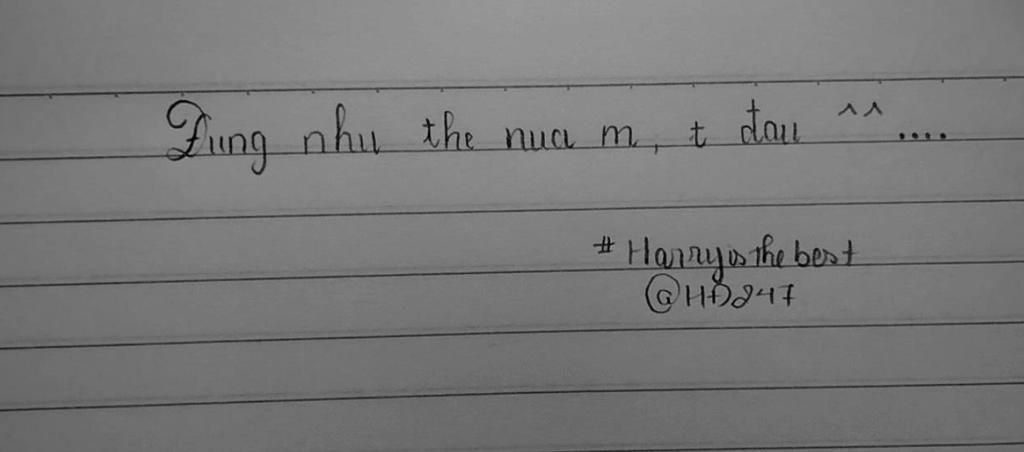 Đung nhu the nua m, t đau ^^....
#Harryisthebest
@HĐ247